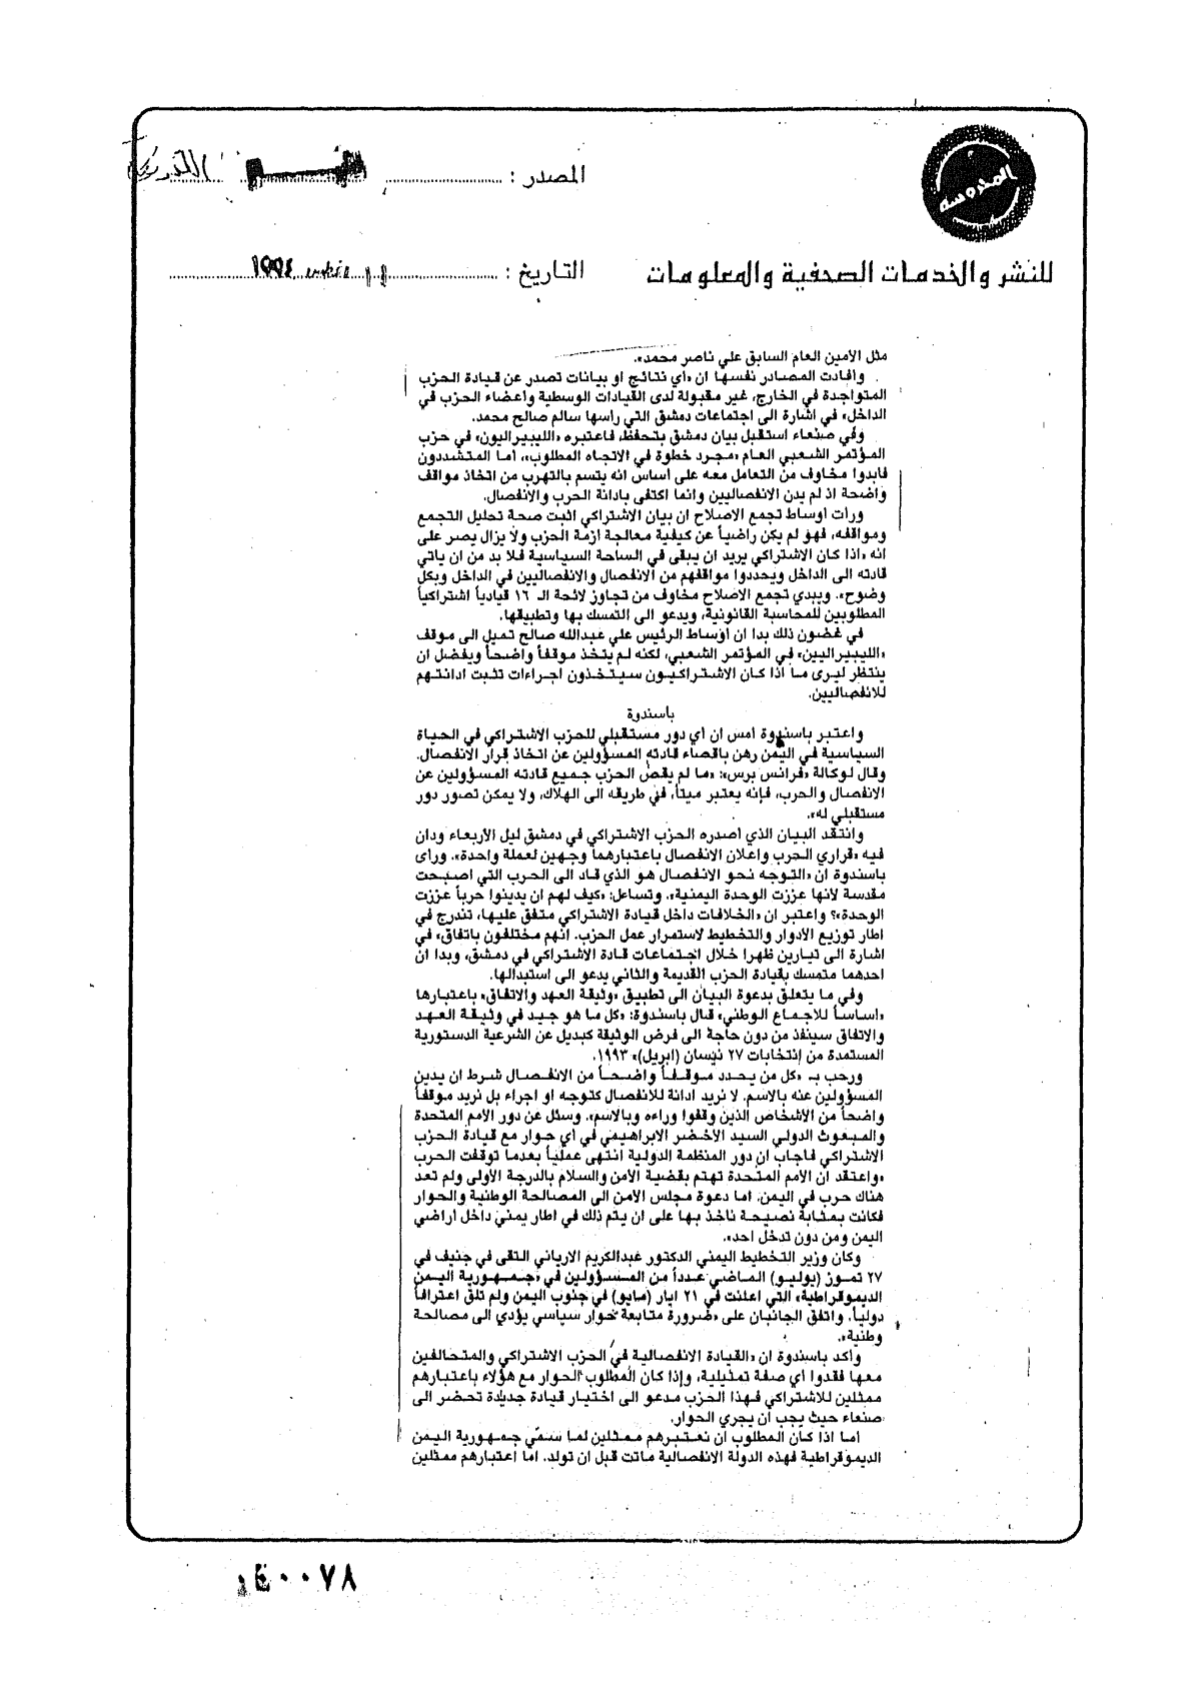 المحروسة
المصدر :
للنشر والخدمات الصحفية والمعلومات
التاريخ : ١٩٩٤
مثل الأمين العام السابق علي ناصر محمد».
وأفادت المصادر نفسها ان «أي نتائج او بيانات تصدر عن قيادة الحزب
المتواجدة في الخارج، غير مقبولة لدى القيادات الوسطية وأعضاء الحزب في
الداخل» في اشارة الى اجتماعات دمشق التي رأسها سالم صالح محمد.
وفي صنعاء استقبل بيان دمشق بتحفظ، فاعتبره «الليبيراليون» في حزب
المؤتمر الشعبي العام «مجرد خطوة في الاتجاه المطلوب»، أما المتشددون
فأبدوا مخاوف من التعامل معه على اساس انه يتسم بالتهرب من اتخاذ مواقف
واضحة اذ لم يدن الانفصاليين وانما اكتفى بادانة الحرب والانفصال.
ورأت اوساط تجمع الاصلاح ان بيان الاشتراكي اثبت صحة تحليل التجمع
ومواقفه، فهو لم يكن راضياً عن كيفية معالجة ازمة الحزب ولا يزال يصر على
انه «اذا كان الاشتراكي يريد ان يبقى في الساحة السياسية فلا بد من ان يأتي
قادته الى الداخل ويحددوا مواقفهم من الانفصال والانفصاليين في الداخل وبكل
وضوح». ويبدي تجمع الاصلاح مخاوف من تجاوز لائحة الـ ١٦ قيادياً اشتراكياً
المطلوبين للمحاسبة القانونية، ويدعو الى التمسك بها وتطبيقها.
في غضون ذلك بدا ان أوساط الرئيس علي عبدالله صالح تميل الى موقف
«الليبيراليين» في المؤتمر الشعبي، لكنه لم يتخذ موقفاً واضحاً ويفضل ان
ينتظر ليرى ما اذا كان الاشتراكيون سيتخذون اجراءات تثبت ادانتهم
للانفصاليين.
باسندوة
واعتبر باسندوة امس ان أي دور مستقبلي للحزب الاشتراكي في الحياة
السياسية في اليمن رهن باقصاء قادته المسؤولين عن اتخاذ قرار الانفصال.
وقال لوكالة «فرانس برس»: «ما لم يقص الحزب جميع قادته المسؤولين عن
الانفصال والحرب، فإنه يعتبر ميتاً، في طريقه الى الهلاك، ولا يمكن تصور دور
مستقبلي له».
وانتقد البيان الذي أصدره الحزب الاشتراكي في دمشق ليل الأربعاء ودان
فيه «قراري الحرب واعلان الانفصال باعتبارهما وجهين لعملة واحدة». ورأى
باسندوة ان «التوجه نحو الانفصال هو الذي قاد الى الحرب التي اصبحت
مقدسة لأنها عززت الوحدة اليمنية». وتساءل: «كيف لهم ان يدينوا حرباً عززت
الوحدة»؟ واعتبر ان «الخلافات داخل قيادة الاشتراكي متفق عليها، تندرج في
اطار توزيع الأدوار والتخطيط لاستمرار عمل الحزب. انهم مختلفون باتفاق» في
اشارة الى تيارين ظهرا خلال اجتماعات قادة الاشتراكي في دمشق، وبدا ان
احدهما متمسك بقيادة الحزب القديمة والثاني يدعو الى استبدالها.
وفي ما يتعلق بدعوة البيان الى تطبيق «وثيقة العهد والاتفاق» باعتبارها
«أساساً للاجماع الوطني» قال باسندوة: «كل ما هو جيد في وثيقة العهد
والاتفاق سينفذ من دون حاجة الى فرض الوثيقة كبديل عن الشرعية الدستورية
المستمدة من إنتخابات ٢٧ نيسان (ابريل)» ١٩٩٣.
ورحب بـ «كل من يحدد موقفاً واضحاً من الانفصال شرط ان يدين
المسؤولين عنه بالاسم. لا نريد ادانة للانفصال كتوجه او اجراء بل نريد موقفاً
واضحاً من الأشخاص الذين وقفوا وراءه وبالاسم». وسئل عن دور الأمم المتحدة
والمبعوث الدولي السيد الأخضر الابراهيمي في اي حوار مع قيادة الحزب
الاشتراكي فأجاب ان دور المنظمة الدولية انتهى عملياً بعدما توقفت الحرب
«واعتقد ان الأمم المتحدة تهتم بقضية الأمن والسلام بالدرجة الأولى ولم تعد
هناك حرب في اليمن. اما دعوة مجلس الأمن الى المصالحة الوطنية والحوار
فكانت بمثابة نصيحة نأخذ بها على ان يتم ذلك في اطار يمني داخل اراضي
اليمن ومن دون تدخل احد».
وكان وزير التخطيط اليمني الدكتور عبدالكريم الارياني التقى في جنيف في
٢٧ تموز (يوليو) الماضي عدداً من المسؤولين في «جمهورية اليمن
الديموقراطية» التي اعلنت في ٢١ ايار (مايو) في جنوب اليمن ولم تلق اعترافاً
دولياً. واتفق الجانبان على «ضرورة متابعة حوار سياسي يؤدي الى مصالحة
وطنية».
وأكد باسندوة ان «القيادة الانفصالية في الحزب الاشتراكي والمتحالفين
معها فقدوا أي صفة تمثيلية، وإذا كان المطلوب الحوار مع هؤلاء باعتبارهم
ممثلين للاشتراكي فهذا الحزب مدعو الى اختيار قيادة جديدة تحضر الى
صنعاء حيث يجب ان يجري الحوار.
أما اذا كان المطلوب ان نعتبرهم ممثلين لما سمّي جمهورية اليمن
الديموقراطية فهذه الدولة الانفصالية ماتت قبل ان تولد. اما اعتبارهم ممثلين
٤٠٠٧٨